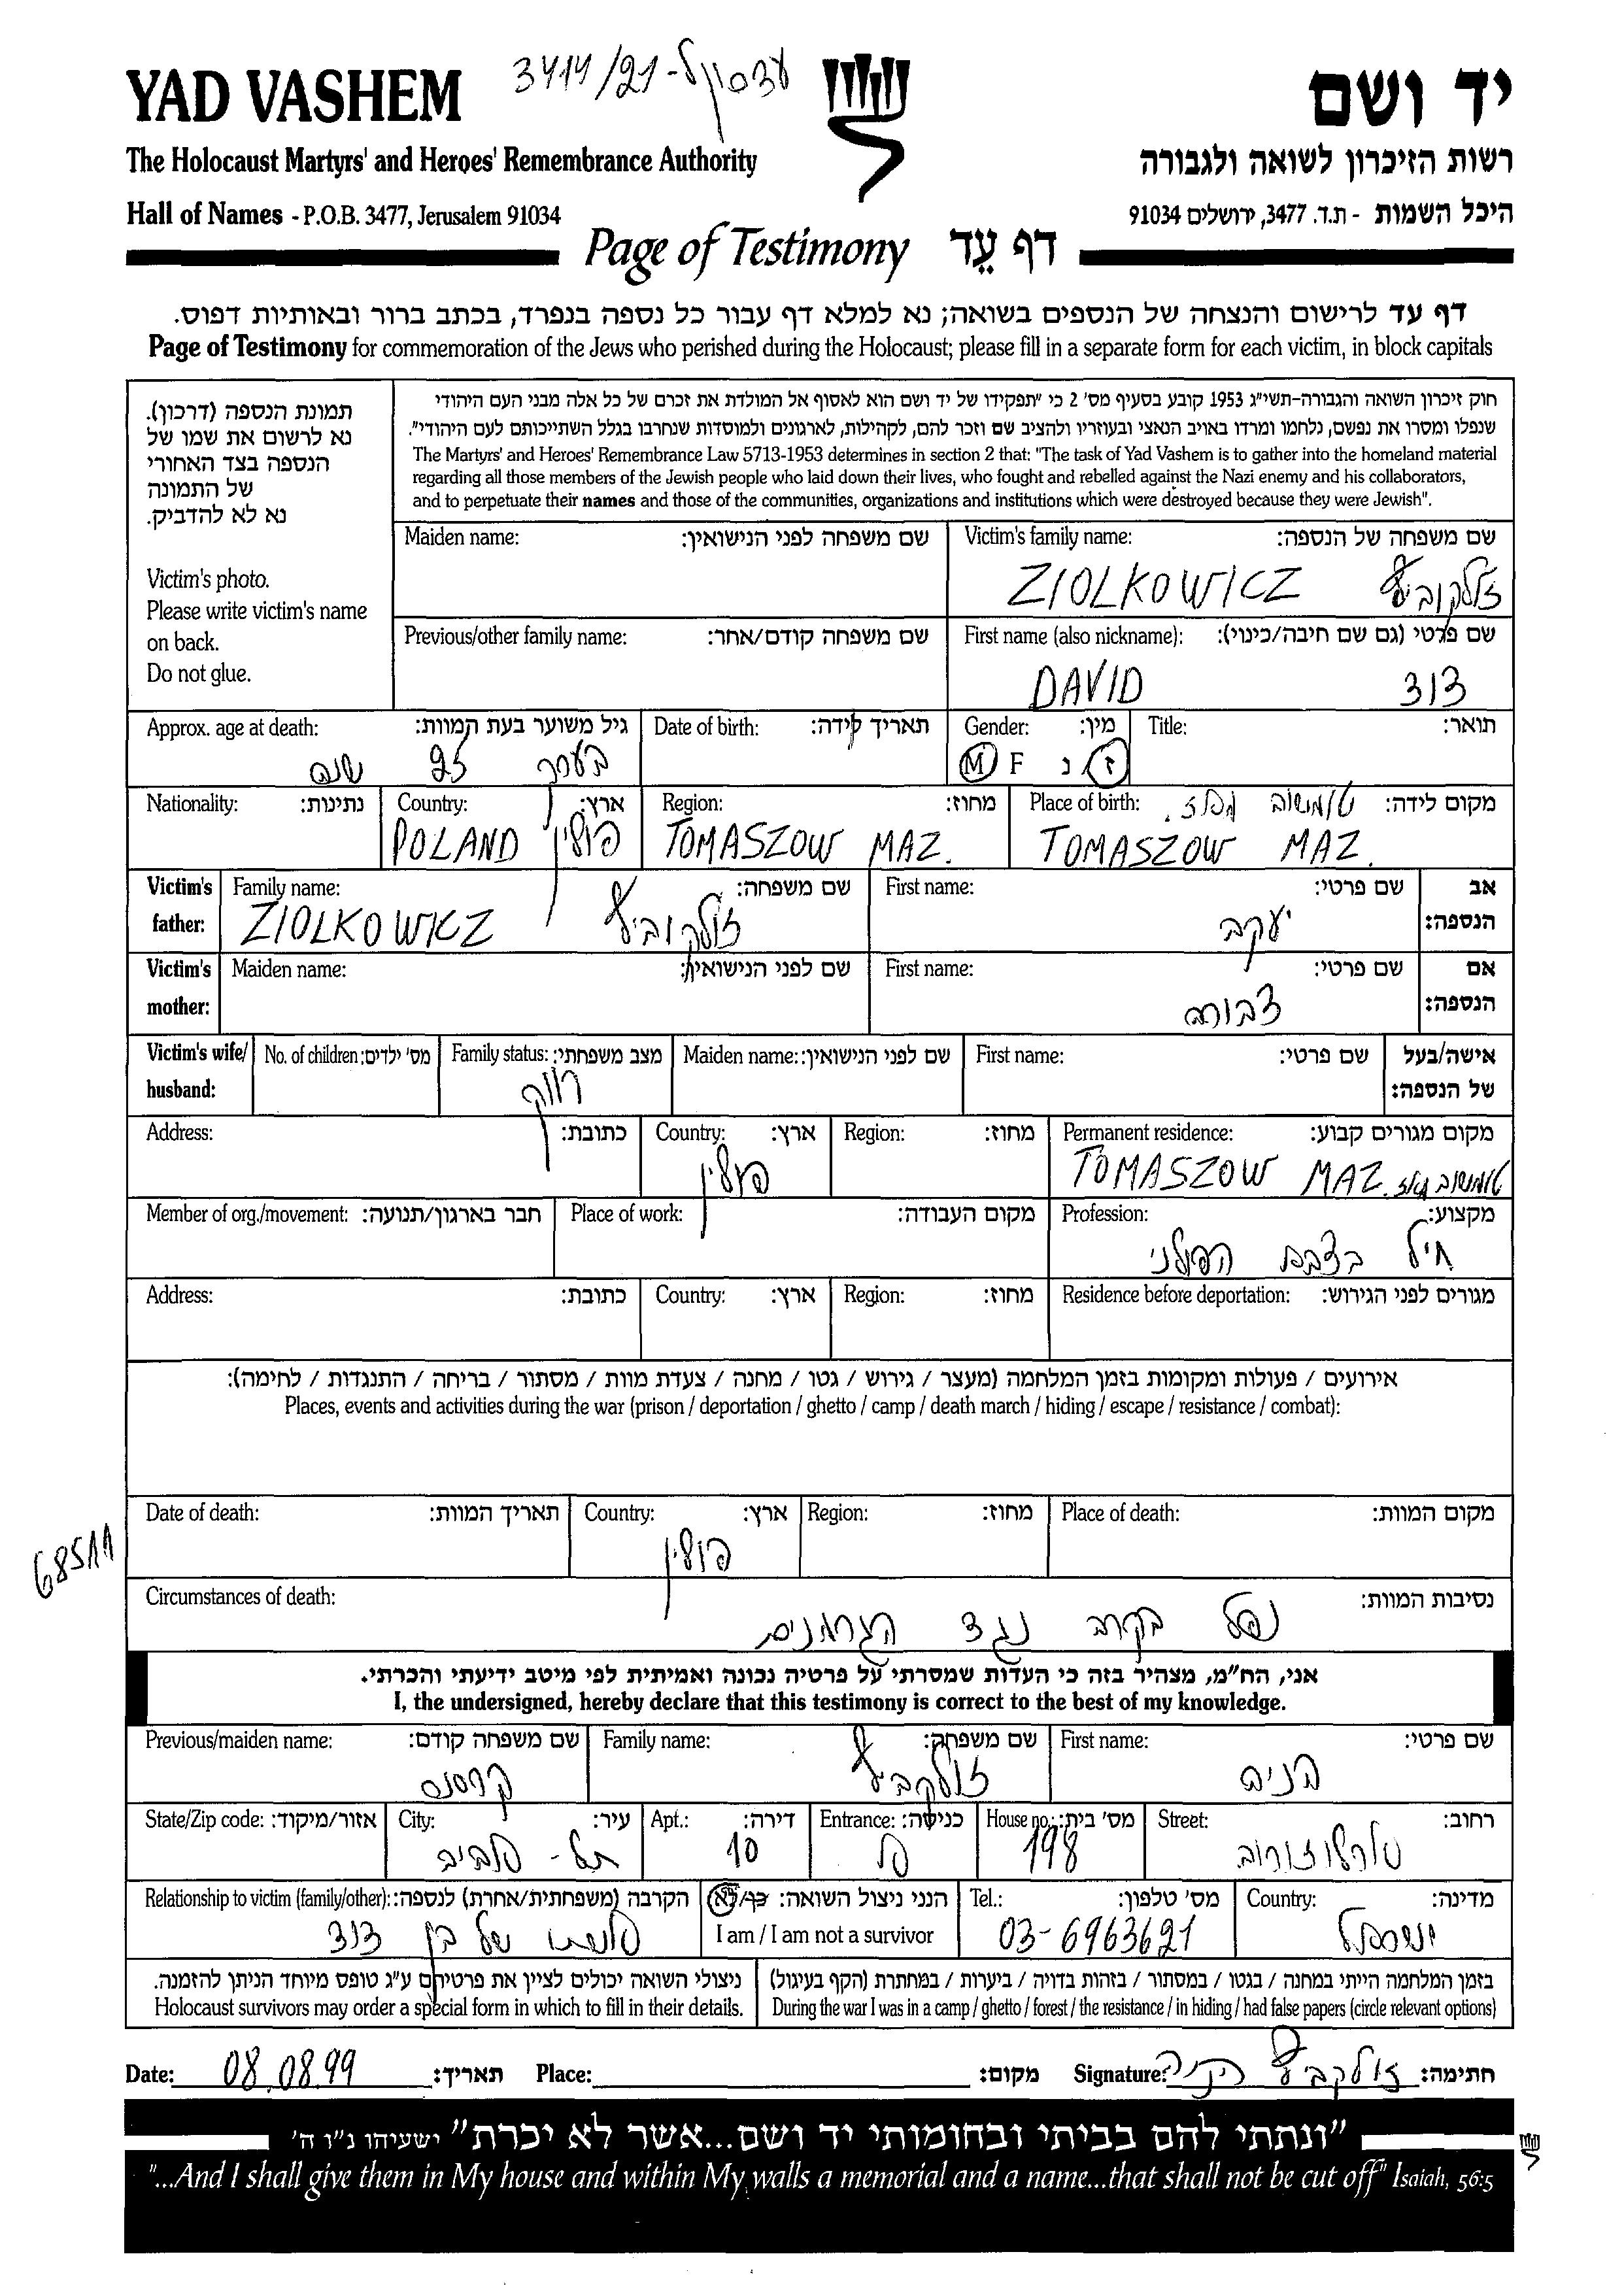 YAD VASHEM 3414/21- יד ושם
The Holocaust Martyrs' and Heroes' Remembrance Authority רשות הזיכרון לשואה ולגבורה
Hall of Names - P.O.B. 3477, Jerusalem 91034 היכל השמות - ת.ד. 3477, ירושלים 91034
Page of Testimony דף עֵד
דף עד לרישום והנצחה של הנספים בשואה; נא למלא דף עבור כל נספה בנפרד, בכתב ברור ובאותיות דפוס.
Page of Testimony for commemoration of the Jews who perished during the Holocaust; please fill in a separate form for each victim, in block capitals
תמונת הנספה (דרכון).
נא לרשום את שמו של
הנספה בצד האחורי
של התמונה
נא לא להדביק.
Victim's photo.
Please write victim's name
on back.
Do not glue.
חוק זיכרון השואה והגבורה-תשי"ג 1953 קובע בסעיף מס' 2 כי "תפקידו של יד ושם הוא לאסוף אל המולדת את זכרם של כל אלה מבני העם היהודי
שנפלו ומסרו את נפשם, נלחמו ומרדו באויב הנאצי ובעוזריו ולהציב שם וזכר להם, לקהילות, לארגונים ולמוסדות שנחרבו בגלל השתייכותם לעם היהודי".
The Martyrs' and Heroes' Remembrance Law 5713-1953 determines in section 2 that: "The task of Yad Vashem is to gather into the homeland material
regarding all those members of the Jewish people who laid down their lives, who fought and rebelled against the Nazi enemy and his collaborators,
and to perpetuate their names and those of the communities, organizations and institutions which were destroyed because they were Jewish".
Maiden name: שם משפחה לפני הנישואין: Victim's family name: שם משפחה של הנספה:
ZIOLKOWICZ זולקוביץ
Previous/other family name: שם משפחה קודם/אחר: First name (also nickname): שם פרטי (גם שם חיבה/כינוי):
DAVID דוד
Approx. age at death: גיל משוער בעת המוות: Date of birth: תאריך לידה: Gender: מין: Title: תואר:
בערך 25 שנה M F ז/נ
Nationality: נתינות: Country: ארץ: Region: מחוז: Place of birth: מקום לידה: טומשוב מאז.
POLAND פולין TOMASZOW MAZ. TOMASZOW MAZ.
Victim's father: Family name: שם משפחה: First name: שם פרטי: אב הנספה:
ZIOLKOWICZ זולקוביץ יעקב
Victim's mother: Maiden name: שם לפני הנישואין: First name: שם פרטי: אם הנספה:
דבורה
Victim's wife/ husband: No. of children: מס' ילדים: Family status: מצב משפחתי: Maiden name: שם לפני הנישואין: First name: שם פרטי: אישה/בעל של הנספה:
רווק
Address: כתובת: Country: ארץ: Region: מחוז: Permanent residence: מקום מגורים קבוע:
פולין TOMASZOW MAZ. טומשוב מאז
Member of org./movement: חבר בארגון/תנועה: Place of work: מקום העבודה: Profession: מקצוע:
חיל בצבא הפולני
Address: כתובת: Country: ארץ: Region: מחוז: Residence before deportation: מגורים לפני הגירוש:
אירועים / פעולות ומקומות בזמן המלחמה (מעצר / גירוש / גטו / מחנה / צעדת מוות / מסתור / בריחה / התנגדות / לחימה):
Places, events and activities during the war (prison / deportation / ghetto / camp / death march / hiding / escape / resistance / combat):
Date of death: תאריך המוות: Country: ארץ: Region: מחוז: Place of death: מקום המוות:
פולין
68511
Circumstances of death: נסיבות המוות:
נפל בקרב נגד הגרמנים
אני, הח"מ, מצהיר בזה כי העדות שמסרתי על פרטיה נכונה ואמיתית לפי מיטב ידיעתי והכרתי.
I, the undersigned, hereby declare that this testimony is correct to the best of my knowledge.
Previous/maiden name: שם משפחה קודם: Family name: שם משפחה: First name: שם פרטי:
זולקביץ
State/Zip code: אזור/מיקוד: City: עיר: Apt.: דירה: Entrance: כניסה: House no.: מס' בית: Street: רחוב:
תל-אביב 10 א 198 ארלוזורוב
Relationship to victim (family/other): הקרבה (משפחתית/אחרת) לנספה: הנני ניצול השואה: כן/לא Tel.: מס' טלפון: Country: מדינה:
אשתו של בן דוד I am / I am not a survivor 03-6963621 ישראל
ניצולי השואה יכולים לציין את פרטיהם ע"ג טופס מיוחד הניתן להזמנה. בזמן המלחמה הייתי במחנה / בגטו / במסתור / בזהות בדויה / ביערות / במחתרת (הקף בעיגול)
Holocaust survivors may order a special form in which to fill in their details. During the war I was in a camp / ghetto / forest / the resistance / in hiding / had false papers (circle relevant options)
Date: 08.08.99 תאריך: Place: מקום: Signature: זולקביץ חתימה:
"ונתתי להם בביתי ובחומותי יד ושם...אשר לא יכרת" ישעיהו נ"ו ה'
"...And I shall give them in My house and within My walls a memorial and a name...that shall not be cut off" Isaiah, 56:5